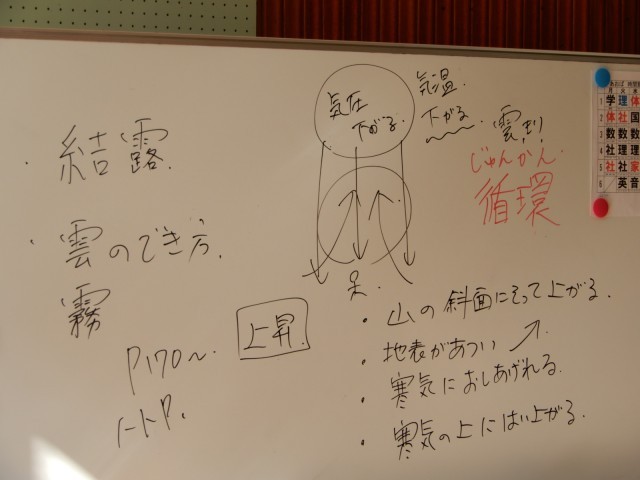 ・結露.
・雲のでき方.
霧
P170～.
ノートP.
上昇.
気圧
下がる.
気温
下がる
雲.
じゅんかん.
循環
・山の斜面にそって上がる.
・地表があつい
・寒気におしあげれる.
・寒気の上にはい上がる.
月 火 水
1 学 理 体
2 体 社 国
3 数 数 数
4 社 理 理
5 社 社 家
6 英 音